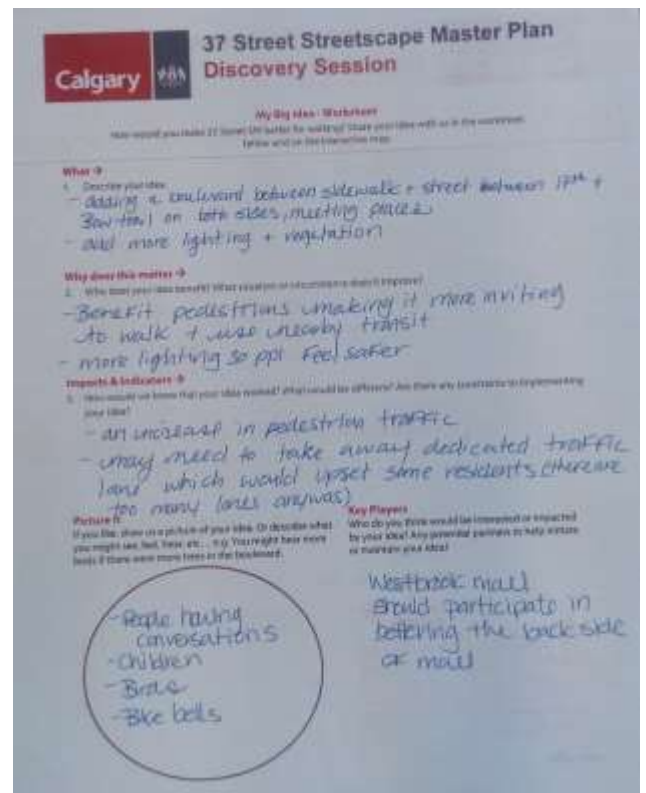 37 Street Streetscape Master Plan
Calgary
Discovery Session
My Big Idea - Worksheet
How would you make 37 Street SW better for walking? Share your idea with us in the worksheet
below and on the interactive map.
What →
1. Describe your idea.
- adding a boulevard between sidewalk + street between 17th +
Bow trail on both sides, meeting places
- add more lighting + vegetation
Why does this matter →
2. Who does your idea benefit? What situation or circumstance does it improve?
- Benefit pedestrians making it more inviting
to walk + use nearby transit
- more lighting so ppl feel safer
Impacts & Indicators →
3. How would we know that your idea worked? What would be different? Are there any constraints to implementing
your idea?
- an increase in pedestrian traffic
- may need to take away dedicated traffic
lane which would upset some residents (there are
too many lanes anyways)
Picture it
If you like, show us a picture of your idea. Or describe what
you might see, feel, hear, etc... e.g. You might hear more
birds if there were more trees in the boulevard.
- People having
conversations
- Children
- Birds
- Bike bells
Key Players
Who do you think would be interested or impacted
by your idea? Any potential partners to help initiate
or maintain your idea?
Westbrook mall
should participate in
bettering the back side
of mall